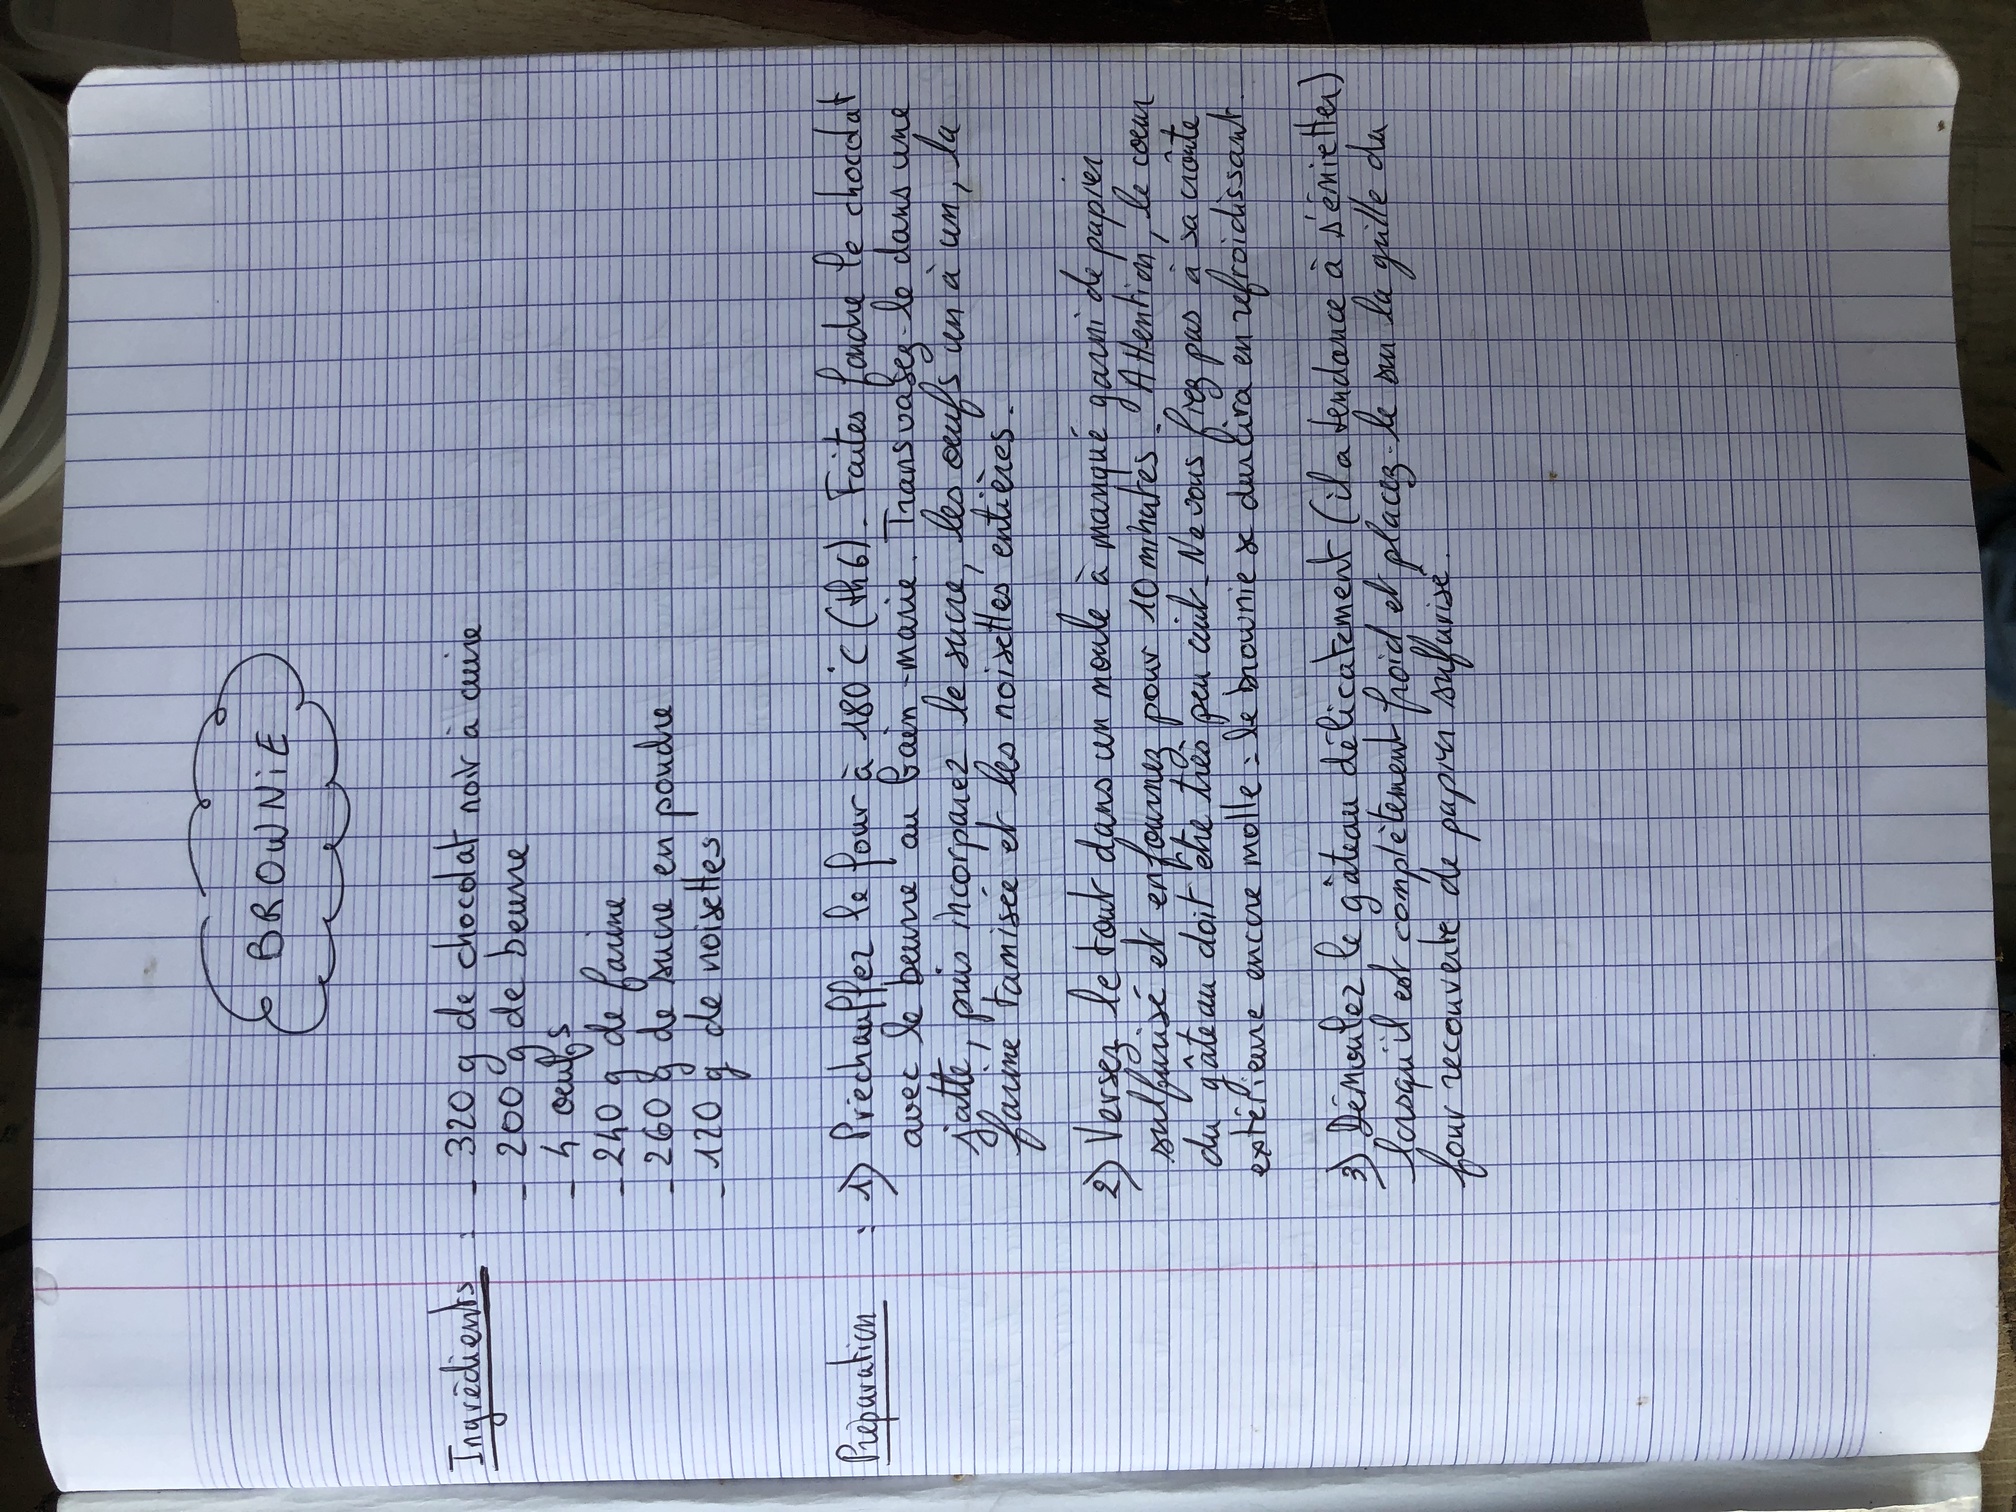 BROWNiE
Ingrédients : - 320 g de chocolat noir à cuire
- 200 g de beurre
- 4 oeufs
- 240 g de farine
- 260 g de sucre en poudre
- 120 g de noisettes
Préparation : 1) Préchauffez le four à 180°C (th6). Faites fondre le chocolat
avec le beurre au bain-marie. Transvasez-le dans une
jatte, puis incorporez le sucre, les oeufs un à un, la
farine tamisée et les noisettes entières.
2) Versez le tout dans un moule à manqué garni de papier
sulfurisé et enfournez pour 10 minutes. Attention, le coeur
du gâteau doit être très peu cuit. Ne vous fiez pas à sa croûte
extérieure encore molle : le brownie se durcira en refroidissant.
3) Démoulez le gâteau délicatement (il a tendance à s'émietter)
lorsqu'il est complètement froid et placez-le sur la grille du
four recouverte de papier sulfurisé.